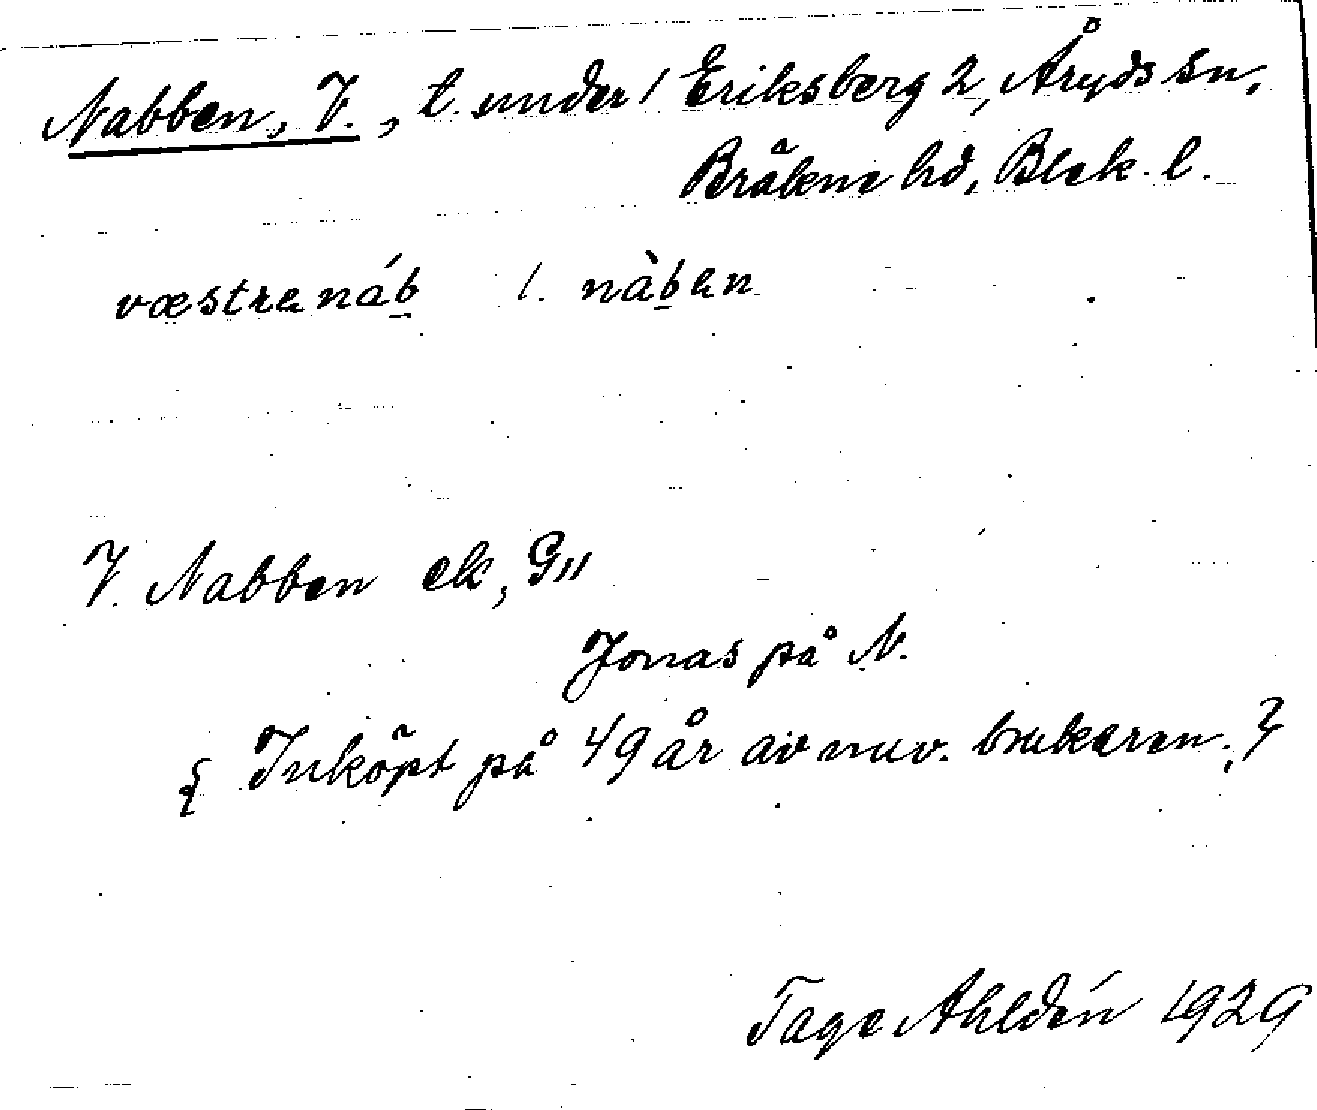 Nabben, V., t. under 1 Eriksberg 2, Åryds sn,
Bräkne hd, Blek. l.
væstra náb l. nàban
V. Nabben ek, G11
Jonas på N.
{ Inköpt på 49 år av nuv. brukaren. }
Tage Ahldén 1929